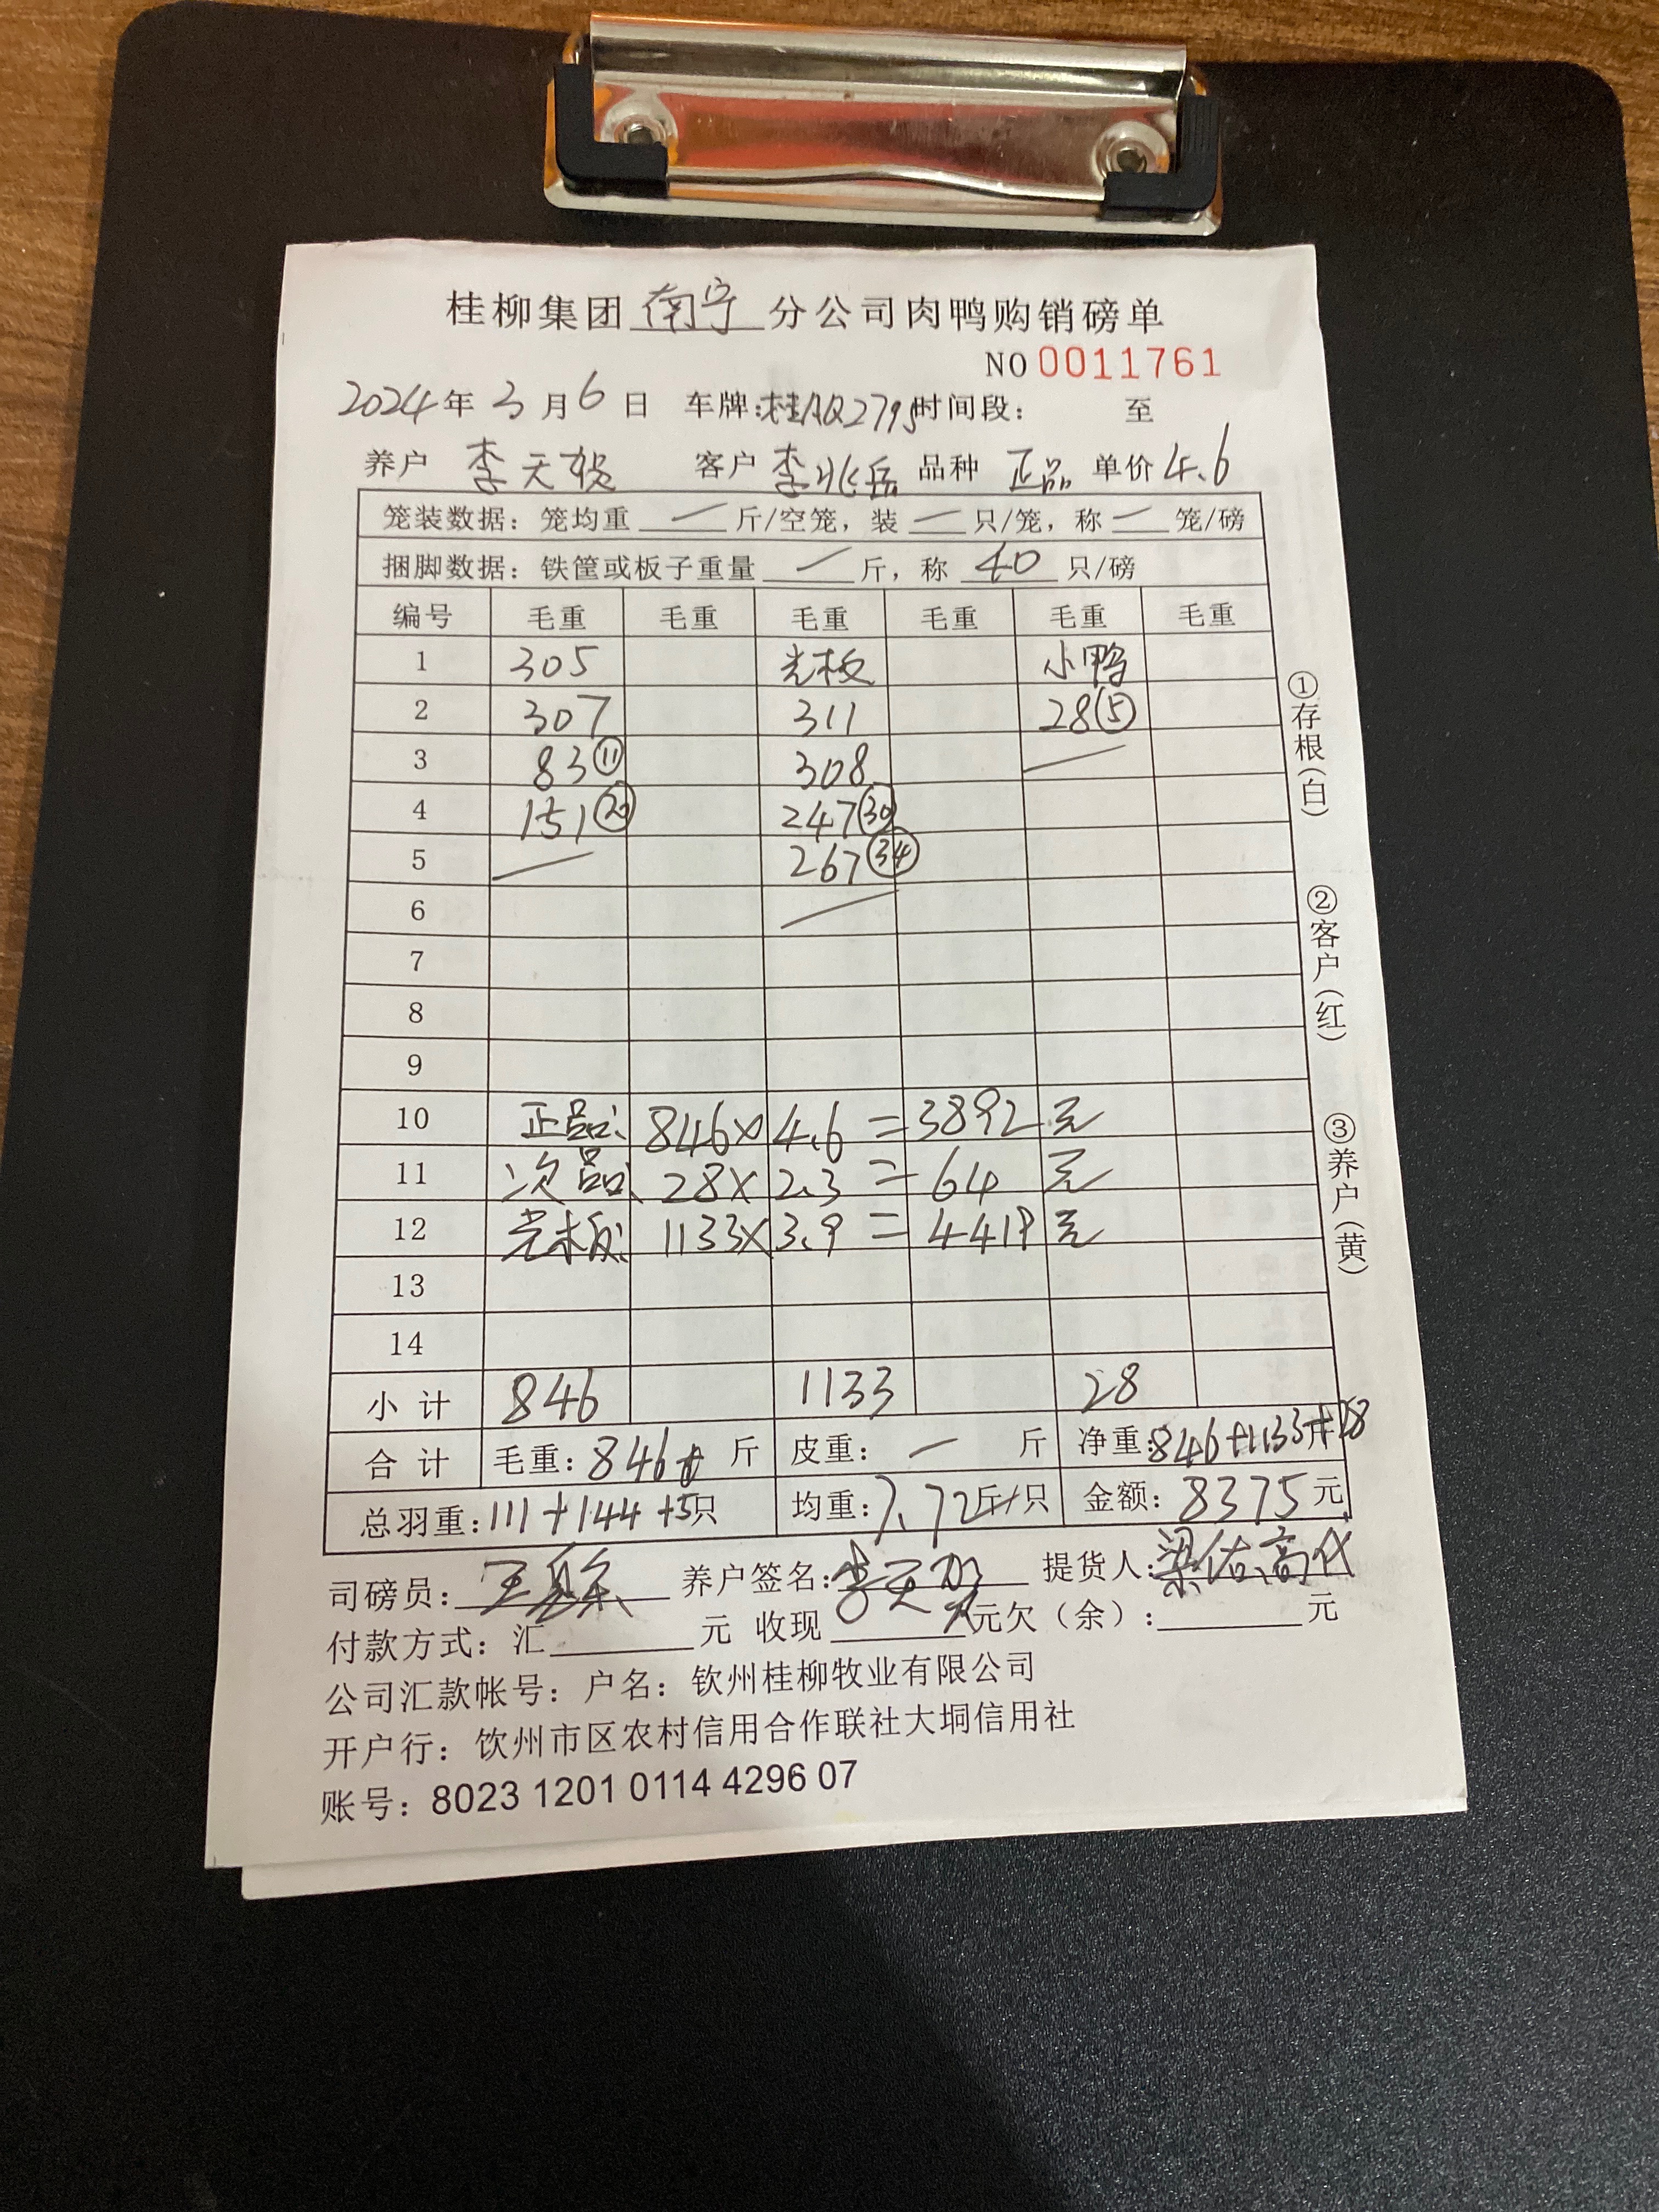 桂柳集团 南宁 分公司肉鸭购销磅单
NO 0011761
2024年 3月 6日 车牌:桂AQ2795 时间段: 至
养户 李天 客户 李兆岳 品种 正品 单价 4.6
笼装数据: 笼均重 — 斤/空笼, 装 — 只/笼, 称 — 笼/磅
捆脚数据: 铁筐或板子重量 — 斤, 称 40 只/磅
编号 毛重 毛重 毛重 毛重 毛重 毛重
1 305 光板 小鸭
2 307 311 28⑤
3 83⑪ 308
4 151⑳ 247㉚
5 — 267㉞
6 —
7
8
9
10 正品: 846×4.6=3892元
11 次品: 28×2.3=64元
12 光板: 1133×3.9=4419元
13
14
小计 846 1133 28
合计 毛重: 846+ 斤 皮重: — 斤 净重: 846+1133+28 斤
总羽重: 111+144+5只 均重: 7.72斤/只 金额: 8375元
司磅员: 王 养户签名: 李天 提货人: 梁佑、高代
付款方式: 汇 元 收现 元欠(余): 元
公司汇款帐号: 户名: 钦州桂柳牧业有限公司
开户行: 钦州市区农村信用合作联社大垌信用社
账号: 8023 1201 0114 4296 07
①存根(白) ②客户(红) ③养户(黄)